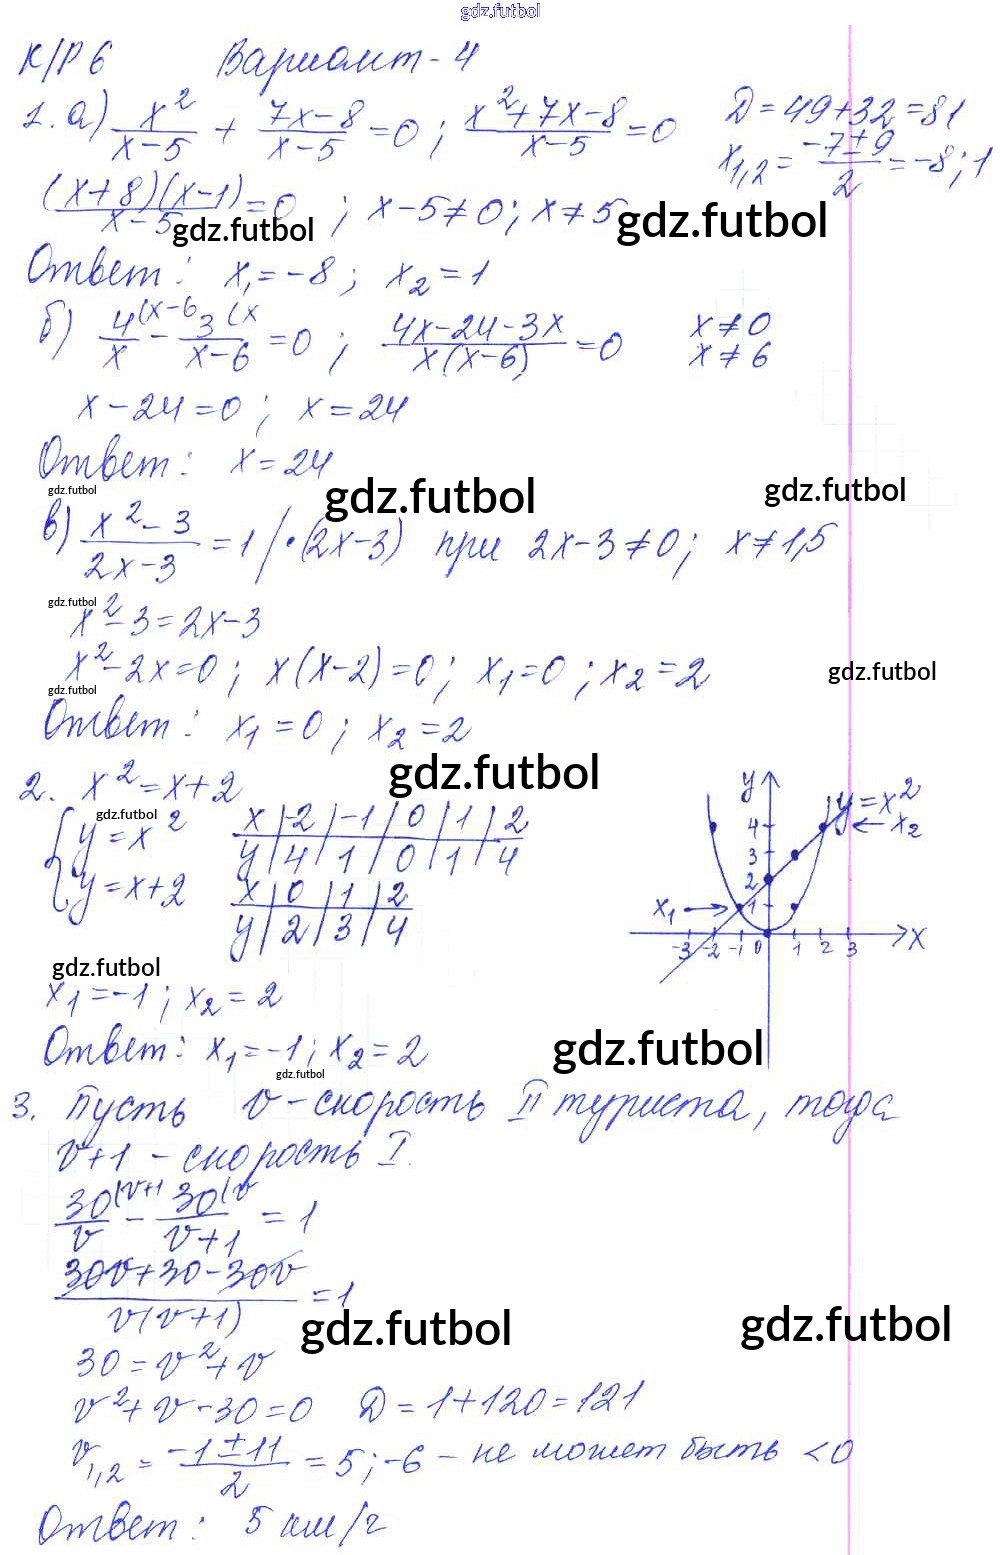 gdz.futbol
К/Р 6 Вариант-4
1. а) x²/(x-5) + (7x-8)/(x-5) = 0 ; (x²+7x-8)/(x-5) = 0 D = 49+32 = 81
x₁,₂ = (-7±9)/2 = -8; 1
(x+8)(x-1)/(x-5) = 0 ; x-5≠0; x≠5
gdz.futbol gdz.futbol
Ответ: x₁=-8; x₂=1
б) 4(x-6/x - 3(x/(x-6) = 0 ; (4x-24-3x)/(x(x-6)) = 0 x≠0
x≠6
x-24=0; x=24
Ответ: x=24
gdz.futbol gdz.futbol gdz.futbol
в) (x²-3)/(2x-3) = 1 /·(2x-3) при 2x-3≠0; x≠1,5
gdz.futbol
x²-3=2x-3
x²-2x=0; x(x-2)=0; x₁=0; x₂=2
gdz.futbol gdz.futbol
Ответ: x₁=0; x₂=2
gdz.futbol
2. x²=x+2
gdz.futbol
{ y=x² x | -2 | -1 | 0 | 1 | 2
y | 4 | 1 | 0 | 1 | 4
y=x+2 x | 0 | 1 | 2
y | 2 | 3 | 4
y y=x²
4 ← x₂
3
2
x₁ → 1
-3 -2 -1 0 1 2 3 x
gdz.futbol
x₁=-1; x₂=2
Ответ: x₁=-1; x₂=2
gdz.futbol gdz.futbol
3. Пусть v - скорость II туриста, тогда
v+1 - скорость I.
30(v+1/v - 30(v/(v+1) = 1
(30v+30-30v)/(v(v+1)) = 1
gdz.futbol gdz.futbol
30=v²+v
v²+v-30=0 D=1+120=121
v₁,₂ = (-1±11)/2 = 5; -6 - не может быть <0
Ответ: 5 км/г